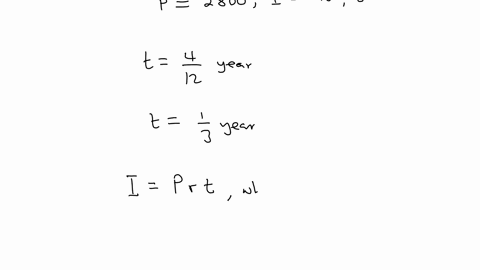 P = 2800, I =
t = 4/12 year
t = 1/3 year
I = Prt, wh